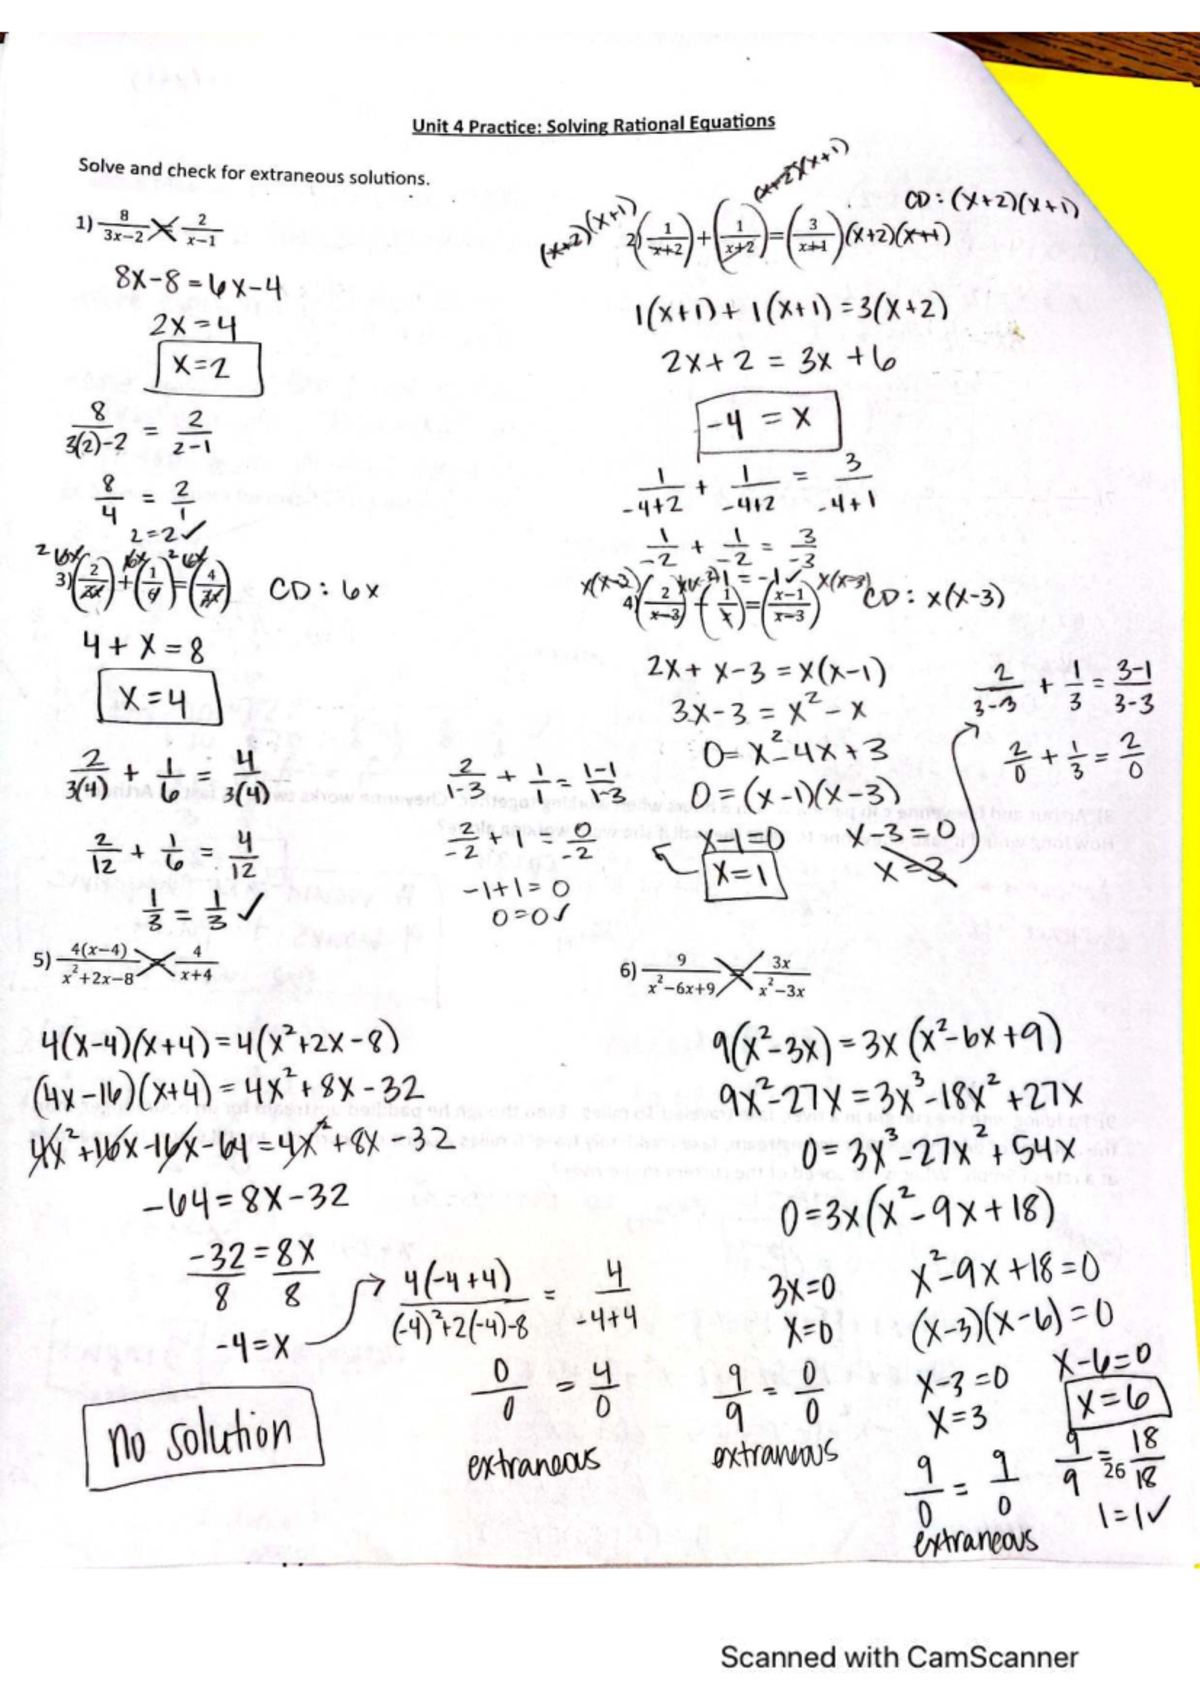 Unit 4 Practice: Solving Rational Equations
Solve and check for extraneous solutions.
1) 8/(3x−2) = 2/(x−1)
8x-8=6x-4
2x=4
x=2
8/(3(2)-2) = 2/(2-1)
8/4 = 2/1
2=2✓
(x+2)(x+1) 2) (1/(x+2)) + (1/(x+2)) = (3/(x+1)) (x+2)(x+1)
(x+2)(x+1)
CD: (x+2)(x+1)
1(x+1)+1(x+1)=3(x+2)
2x+2 = 3x+6
-4 = x
1/(-4+2) + 1/(-4+2) = 3/(-4+1)
1/-2 + 1/-2 = 3/-3
-1 = -1✓
3) (2/3x) + (1/6) = (4/3x) CD: 6x
4+x=8
x=4
2/3(4) + 1/6 = 4/3(4)
2/12 + 1/6 = 4/12
1/3 = 1/3 ✓
4) (2/(x−3)) + (1/x) = ((x−1)/(x−3)) x(x-3) CD: x(x-3)
2x+x-3=x(x-1)
3x-3=x²-x
0=x²-4x+3
0=(x-1)(x-3)
x-1=0 x-3=0
x=1 x=3
2/(1-3) + 1/1 = (1-1)/(1-3)
2/-2 + 1 = 0/-2
-1+1=0
0=0✓
2/(3-3) + 1/3 = (3-1)/(3-3)
2/0 + 1/3 = 2/0
5) 4(x−4)/(x²+2x−8) = 4/(x+4)
4(x-4)(x+4)=4(x²+2x-8)
(4x-16)(x+4)=4x²+8x-32
4x²+16x-16x-64=4x²+8x-32
-64=8x-32
-32/8=8x/8
-4=x
4(-4+4)/((-4)²+2(-4)-8) = 4/(-4+4)
0/0 = 4/0
extraneous
no solution
6) 9/(x²−6x+9) = 3x/(x²−3x)
9(x²-3x)=3x(x²-6x+9)
9x²-27x=3x³-18x²+27x
0=3x³-27x²+54x
0=3x(x²-9x+18)
3x=0 x²-9x+18=0
x=0 (x-3)(x-6)=0
x-3=0 x-6=0
x=3 x=6
9/9 = 0/0
extraneous
9/0 = 9/0
extraneous
9/9 = 18/18
1=1✓
26
Scanned with CamScanner